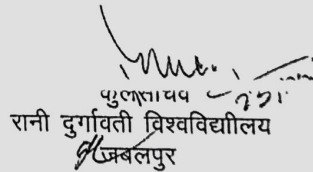 कुलसचिव
रानी दुर्गावती विश्वविद्याीलय
जबलपुर